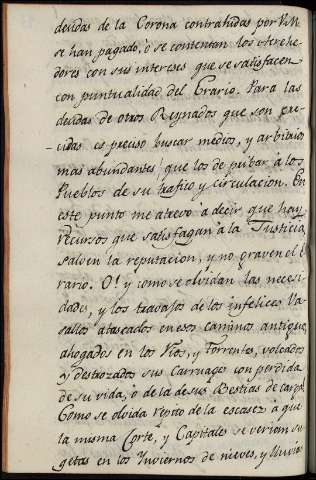 deudas de la Corona contrahidas por V.M.
se han pagado, ò se contentan los Acrehe-
dores con sus intereses que se satisfacen
con puntualidad del Erario. Para las
deudas de otros Reynados que son pre-
-vidas es preciso buscar medios, y arbitrios
mas abundantes que los de pribar à los
Pueblos de su trafico y circulacion. En
este punto me atrevo à decir que hay
recursos que satisfagan à la Justicia,
salven la reputacion, y no graven el E-
rario. O! y como se olvidan las necesi-
dades, y los travajos de los infelices Va-
sallos atascados en esos caminos antiguos,
ahogados en los Rios, y Torrentes, volcados
y destrozados sus Carruages con perdida
de su vida, ò de la de sus Bestias de carga.
Como se olvida repito de la escasez à que
la misma Corte, y Capitales se veriam su-
getas en los Inviernos de nieves, y lluvias